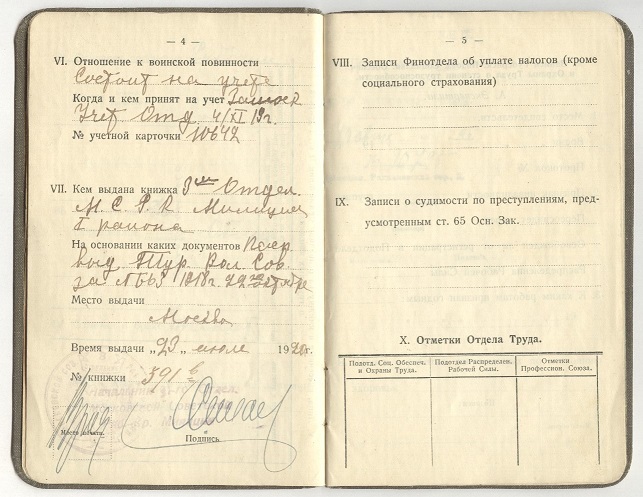 — 4 —
VI. Отношение к воинской повинности
Состоит на учете
Когда и кем принят на учет
Учет Отд 4/XI 19г.
№ учетной карточки 10642
VII. Кем выдана книжка 3им Отдел.
М. С. Р. Милиции
I района
На основании каких документов
выд. Вол. Сов.
за № 663 1918г. 22го
Место выдачи
Москва
Время выдачи „23" июля 1920г.
№ книжки 391
Место печати.
Подпись
— 5 —
VIII. Записи Финотдела об уплате налогов (кроме
социального страхования)
IX. Записи о судимости по преступлениям, пред-
усмотренным ст. 65 Осн. Зак.
X. Отметки Отдела Труда.
Подотд. Соц. Обеспеч.
и Охраны Труда.
Подотдел Распределен.
Рабочей Силы.
Отметки
Профессион. Союза.